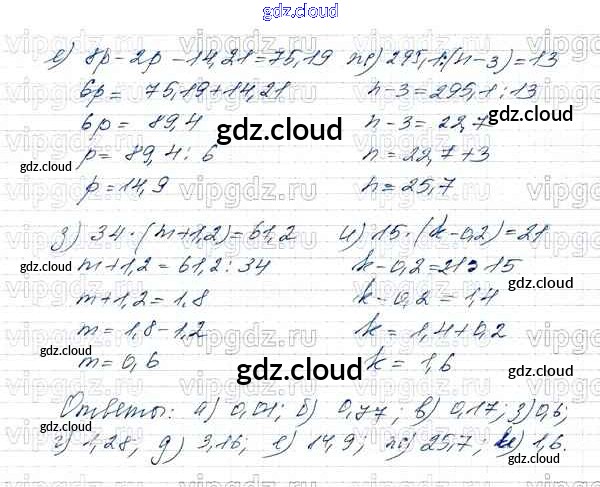 gdz.cloud
е) 8p - 2p - 14,21 = 75,19
6p = 75,19 + 14,21
6p = 89,4
p = 89,4 : 6
p = 14,9
ж) 295,1 : (n - 3) = 13
n - 3 = 295,1 : 13
n - 3 = 22,7
n = 22,7 + 3
n = 25,7
з) 34 · (m + 1,2) = 61,2
m + 1,2 = 61,2 : 34
m + 1,2 = 1,8
m = 1,8 - 1,2
m = 0,6
и) 15 · (k - 0,2) = 21
k - 0,2 = 21 : 15
k - 0,2 = 1,4
k = 1,4 + 0,2
k = 1,6
Ответы: а) 0,01; б) 0,77; в) 0,17; з) 0,6;
г) 1,28; д) 3,16; е) 14,9; ж) 25,7; и) 1,6.
gdz.cloud
gdz.cloud
gdz.cloud
gdz.cloud
gdz.cloud
gdz.cloud
gdz.cloud
gdz.cloud
gdz.cloud
vipgdz.ru